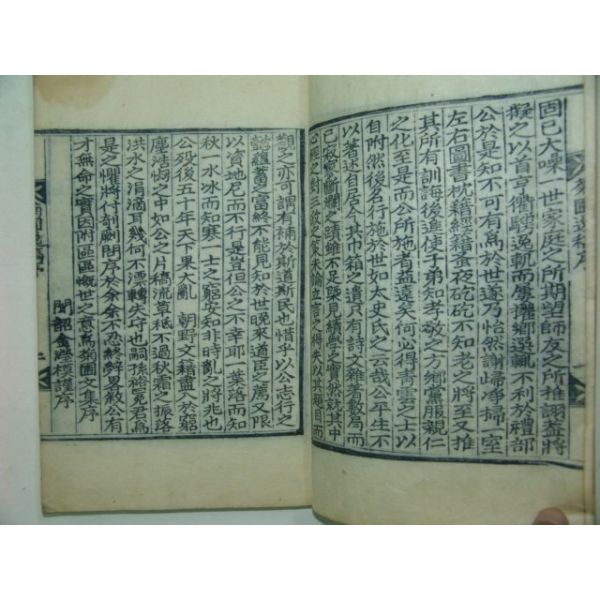 固已大噪一世家庭之所期望師友之所推詡盖將
擬之以首亨衢騁逸軌而屢擯鄉選輒不利於禮部
公於是知不可有為於世遂乃怡然謝歸淨掃一室
左右圖書枕籍經籍蚤夜矻矻不知老之將至又推
其所有訓誨後進使子弟知孝悌之方鄉黨服親仁
之化至是而公所施者益遠矣何必得青雲之士以
自附然後名行施於世如太史氏之云哉公平生不
以著述自居今其巾箱之遺只有詩及雜著數局而
已寂寥斷爛之蹟雖不足槩見績學之實然就其中
心經之對三政之策朱論立言之得失以其題目而
觀之亦可謂有補於斯道斯民也惜乎以公志行之
懿蘊蓄之富終不能見知於世晚來道臣之薦又限
以資地尼而不行是豈但公之不幸耶一葉落而知
秋一水冰而知寒一士之窮安知非時亂之將兆也
公歿後五十年天下果大亂朝野文籍盡入於窮
塵浩惘之中如公之片稿流草秪不過秋霜之振落
洪水之涓滴耳幾何不漂轉失守也嗣孫裕冕君為
是之懼將付剞劂問序於余余不忍終辭畧敘公有
才無命之實因附區區慨世之意為菊圃文集序
聞韶金 模謹序